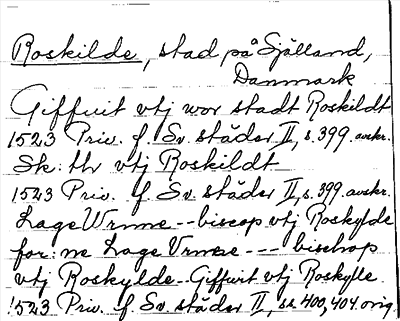 Roskilde, stad på Själland,
Danmark
Giffuit vtj wor stadt Roskildt
1523 Priv. f. Sv. städer II, s. 399 avskr.
Sk: thr vtj Roskildt
1523 Priv. f. Sv. städer II, s. 399 avskr.
Lage Wrnne -- biscop vtj Roskylde
for: ne Lage Vrnne --- bischop
vtj Roskylde - Giffuit vtj Roskylle
1523 Priv. f. Sv. städer II, ss. 400, 404 orig.